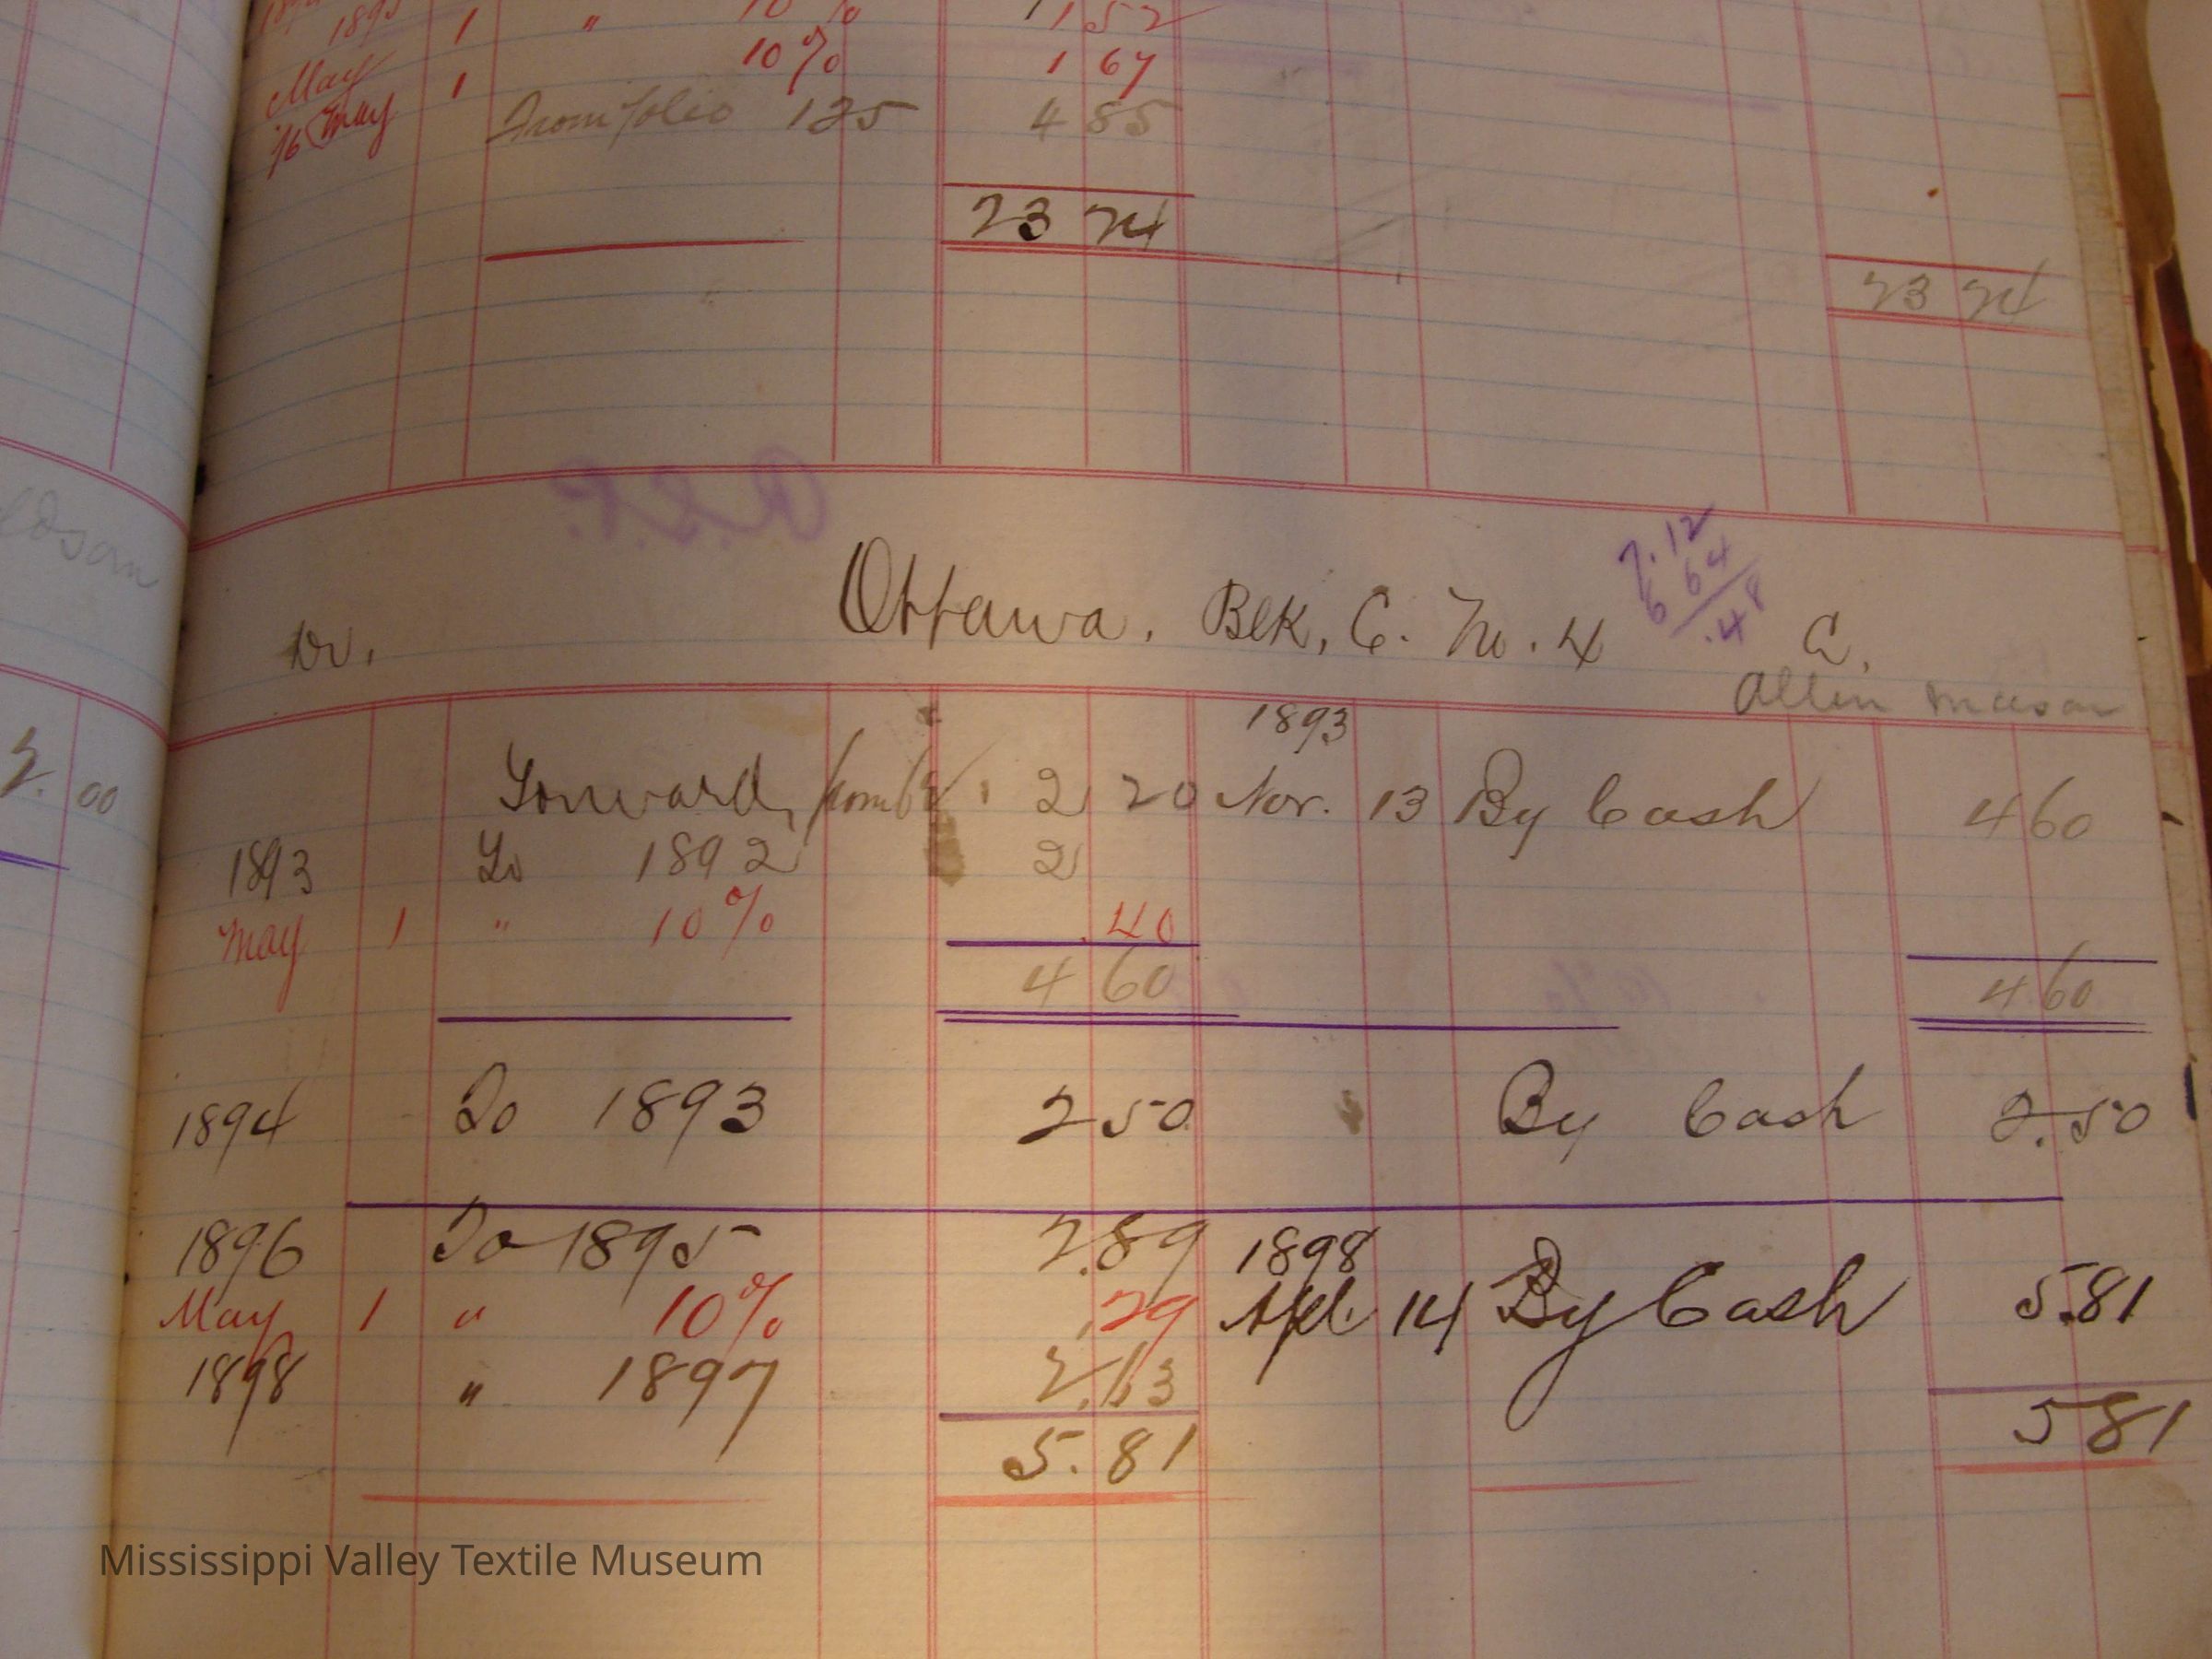 1895 1 " 10% 1 52
May 1 10% 1 67
96 May From folio 125 4 85
23 74
23 74
R.S.P.
7.12
6 64
.48
Dr. Ottawa. Blk, C. No. 4 C.
Allen
1893
Forward, from 2 20 Nov. 13 By Cash 4 60
1893 To 1892 2
May 1 " 10% .40
4 60 4 60
1894 To 1893 2 50 By Cash 2.50
1896 To 1895 2.89 1898
May 1 " 10% .29 Apl. 14 By Cash 5.81
1898 " 1897 2.63
5.81 5 81
2.00
Mississippi Valley Textile Museum